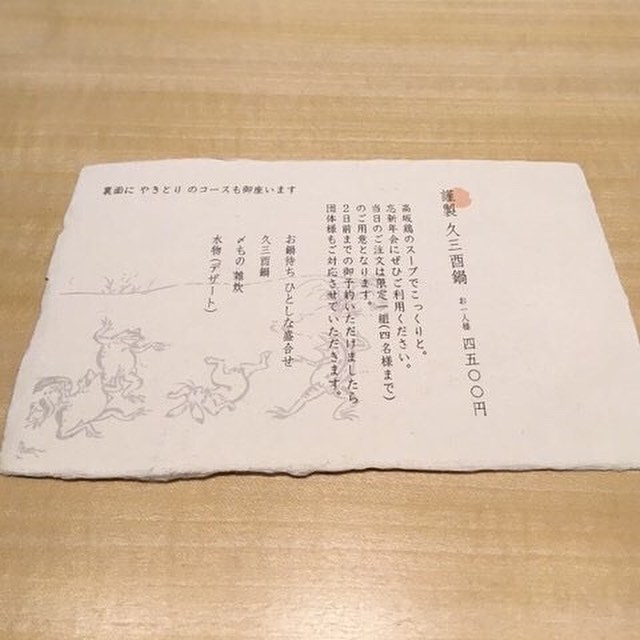 謹製 久三酉鍋 お一人様 四五〇〇円
高坂鶏のスープでこっくりと。
忘新年会にぜひご利用ください。
当日のご注文は限定一組(四名様まで)
のご用意となります。
2日前までの御予約いただけましたら
団体様もご対応させていただきます。
お鍋待ち ひとしな盛合せ
久三酉鍋
〆もの 雑炊
水物(デザート)
裏面に やきとり のコースも御座います